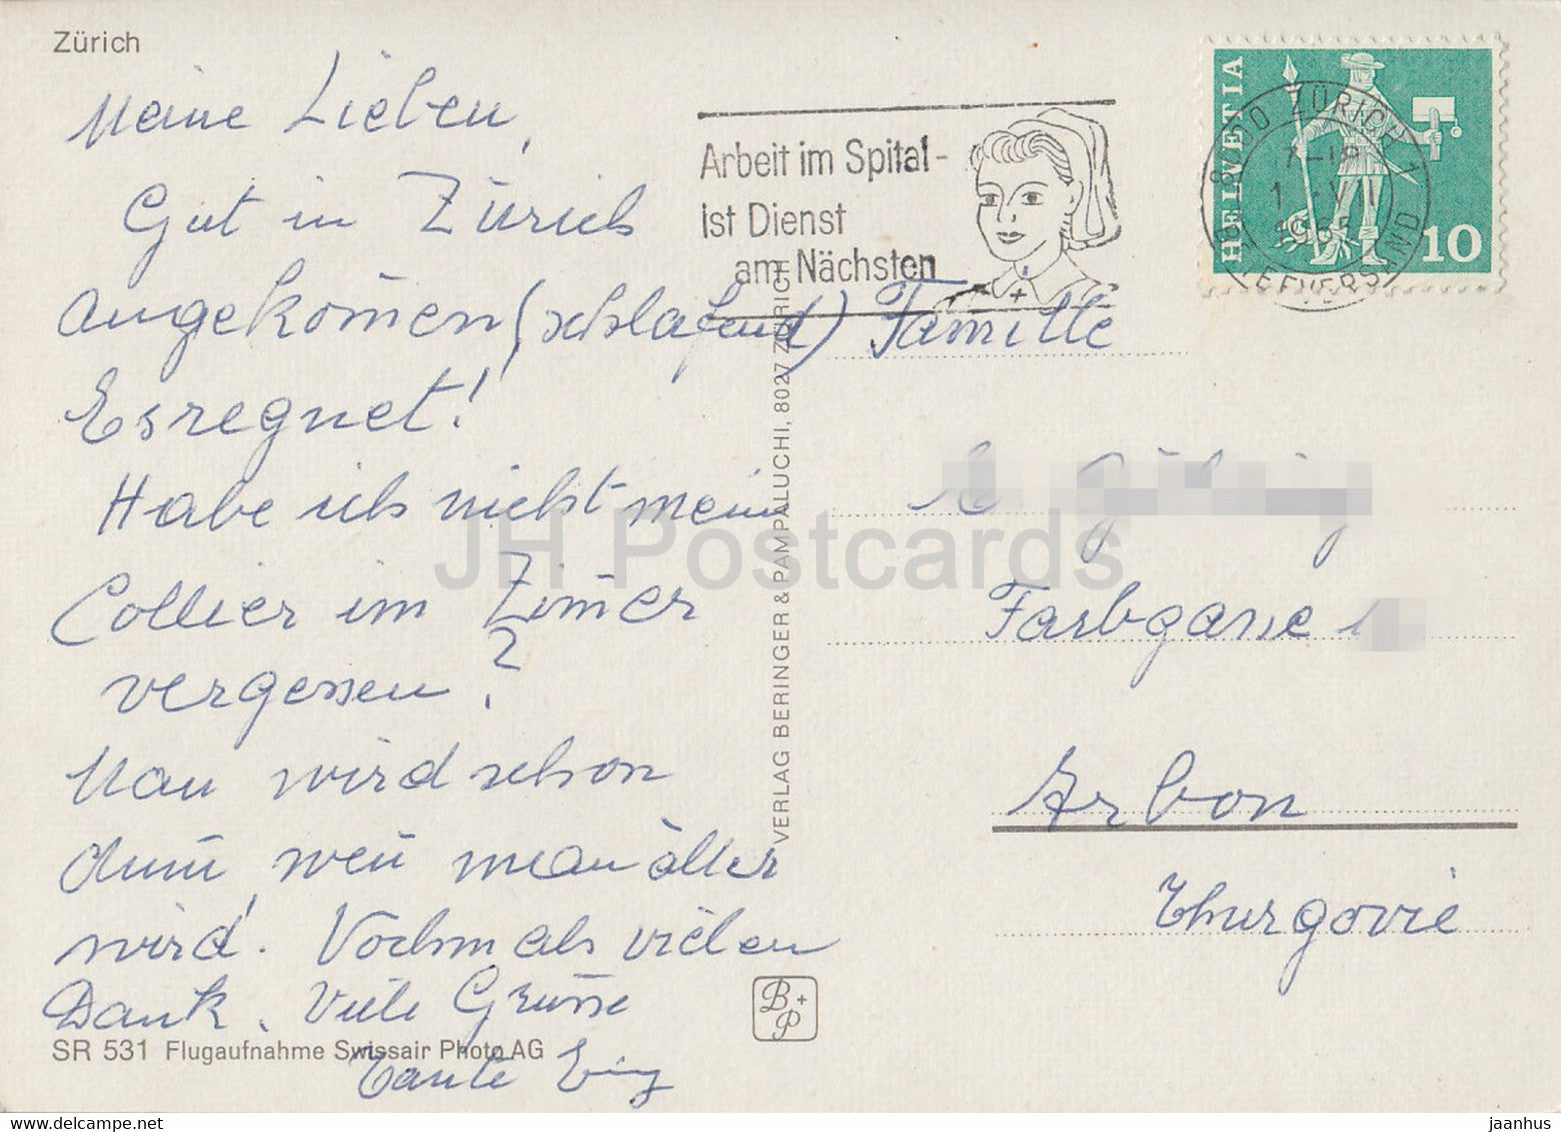 Zürich
Meine Lieben,
Gut in Zürich
angekom̄en (schlafend)
Es regnet!
Habe ich nicht mein
Collier im Zim̄er
vergessen?
Man wird schon
dum̄, wen̄ man älter
wird. Nochmals vielen
Dank. Viele Grüsse
Tante
SR 531 Flugaufnahme Swissair Photo AG
VERLAG BERINGER & PAMPALUCHI, 8027 ZÜRICH
B+P
Arbeit im Spital -
ist Dienst
am Nächsten
HELVETIA
10
ZÜRICH 1
BRIEFVERSAND
Familie
Farbgasse
Arbon
Thurgovie
JH Postcards
www.delcampe.net
jaanhus